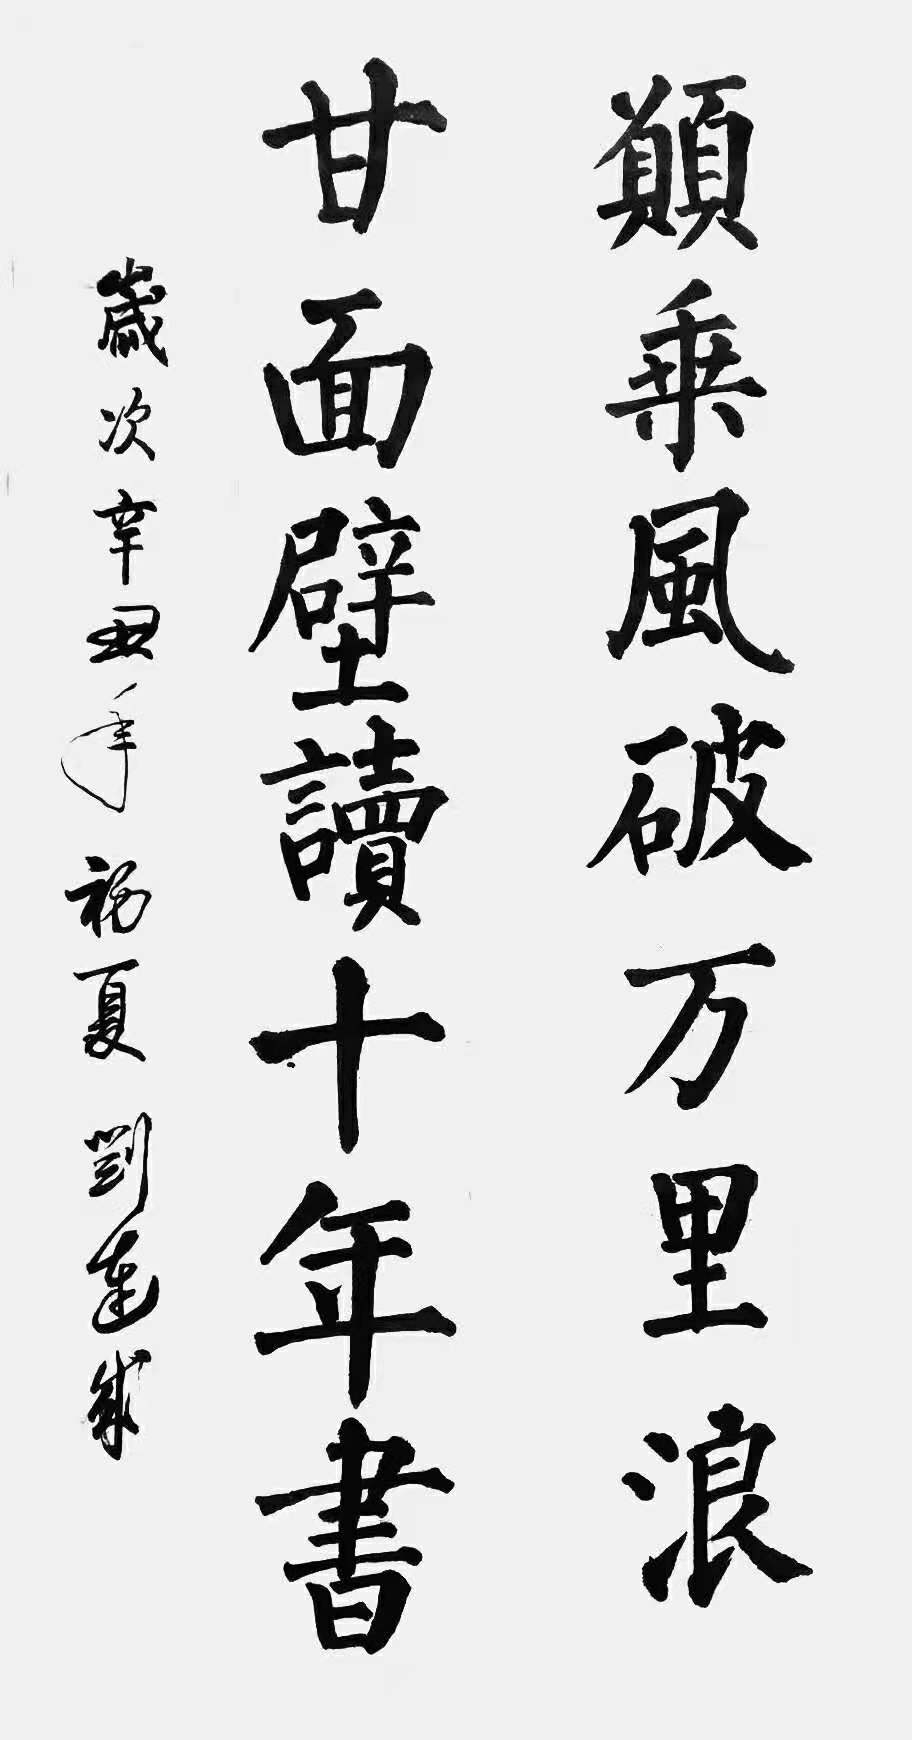 願乘風破万里浪
甘面壁讀十年書
歲次辛丑年初夏 劉連成